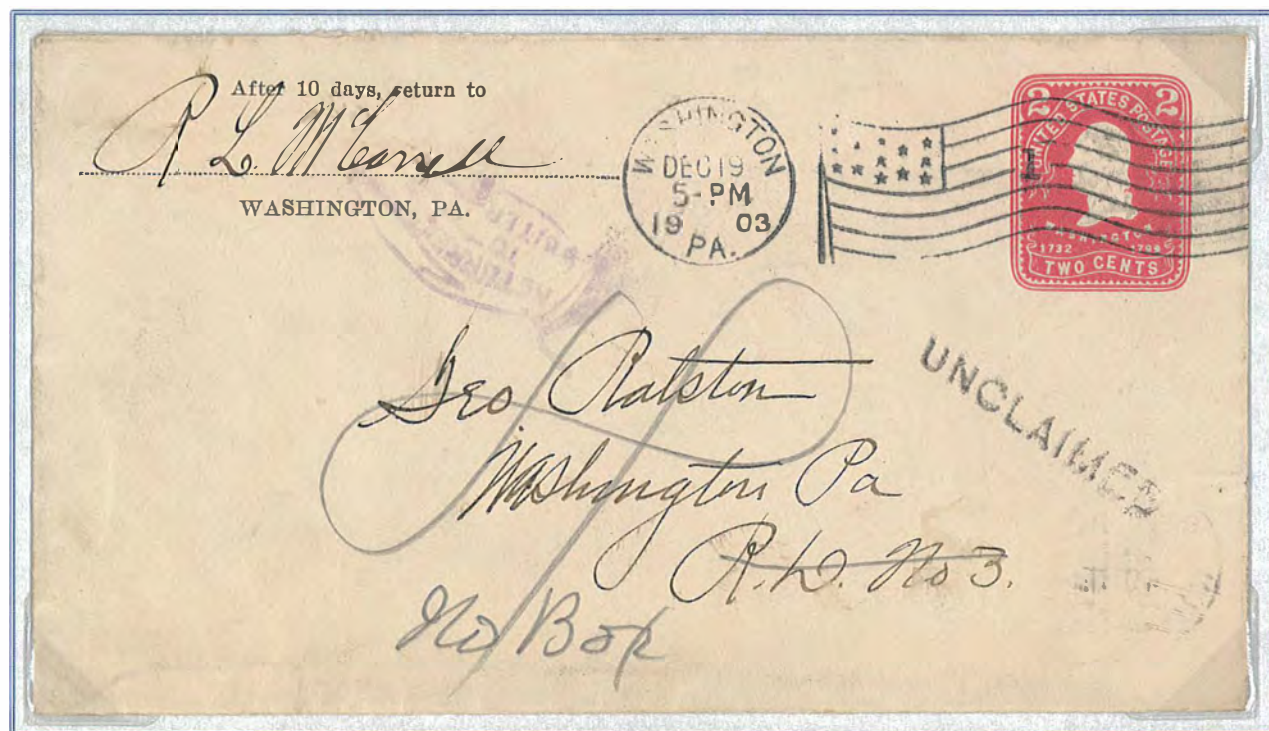 After 10 days, return to
R L. McCarrell
WASHINGTON, PA.
WASHINGTON
DEC 19
5-PM
19 03
PA.
1
2 2
UNITED STATES POSTAGE
WASHINGTON
1732 1799
TWO CENTS
UNCLAIMED
Geo Ralston
Washington Pa
R.D. No 3.
No Box